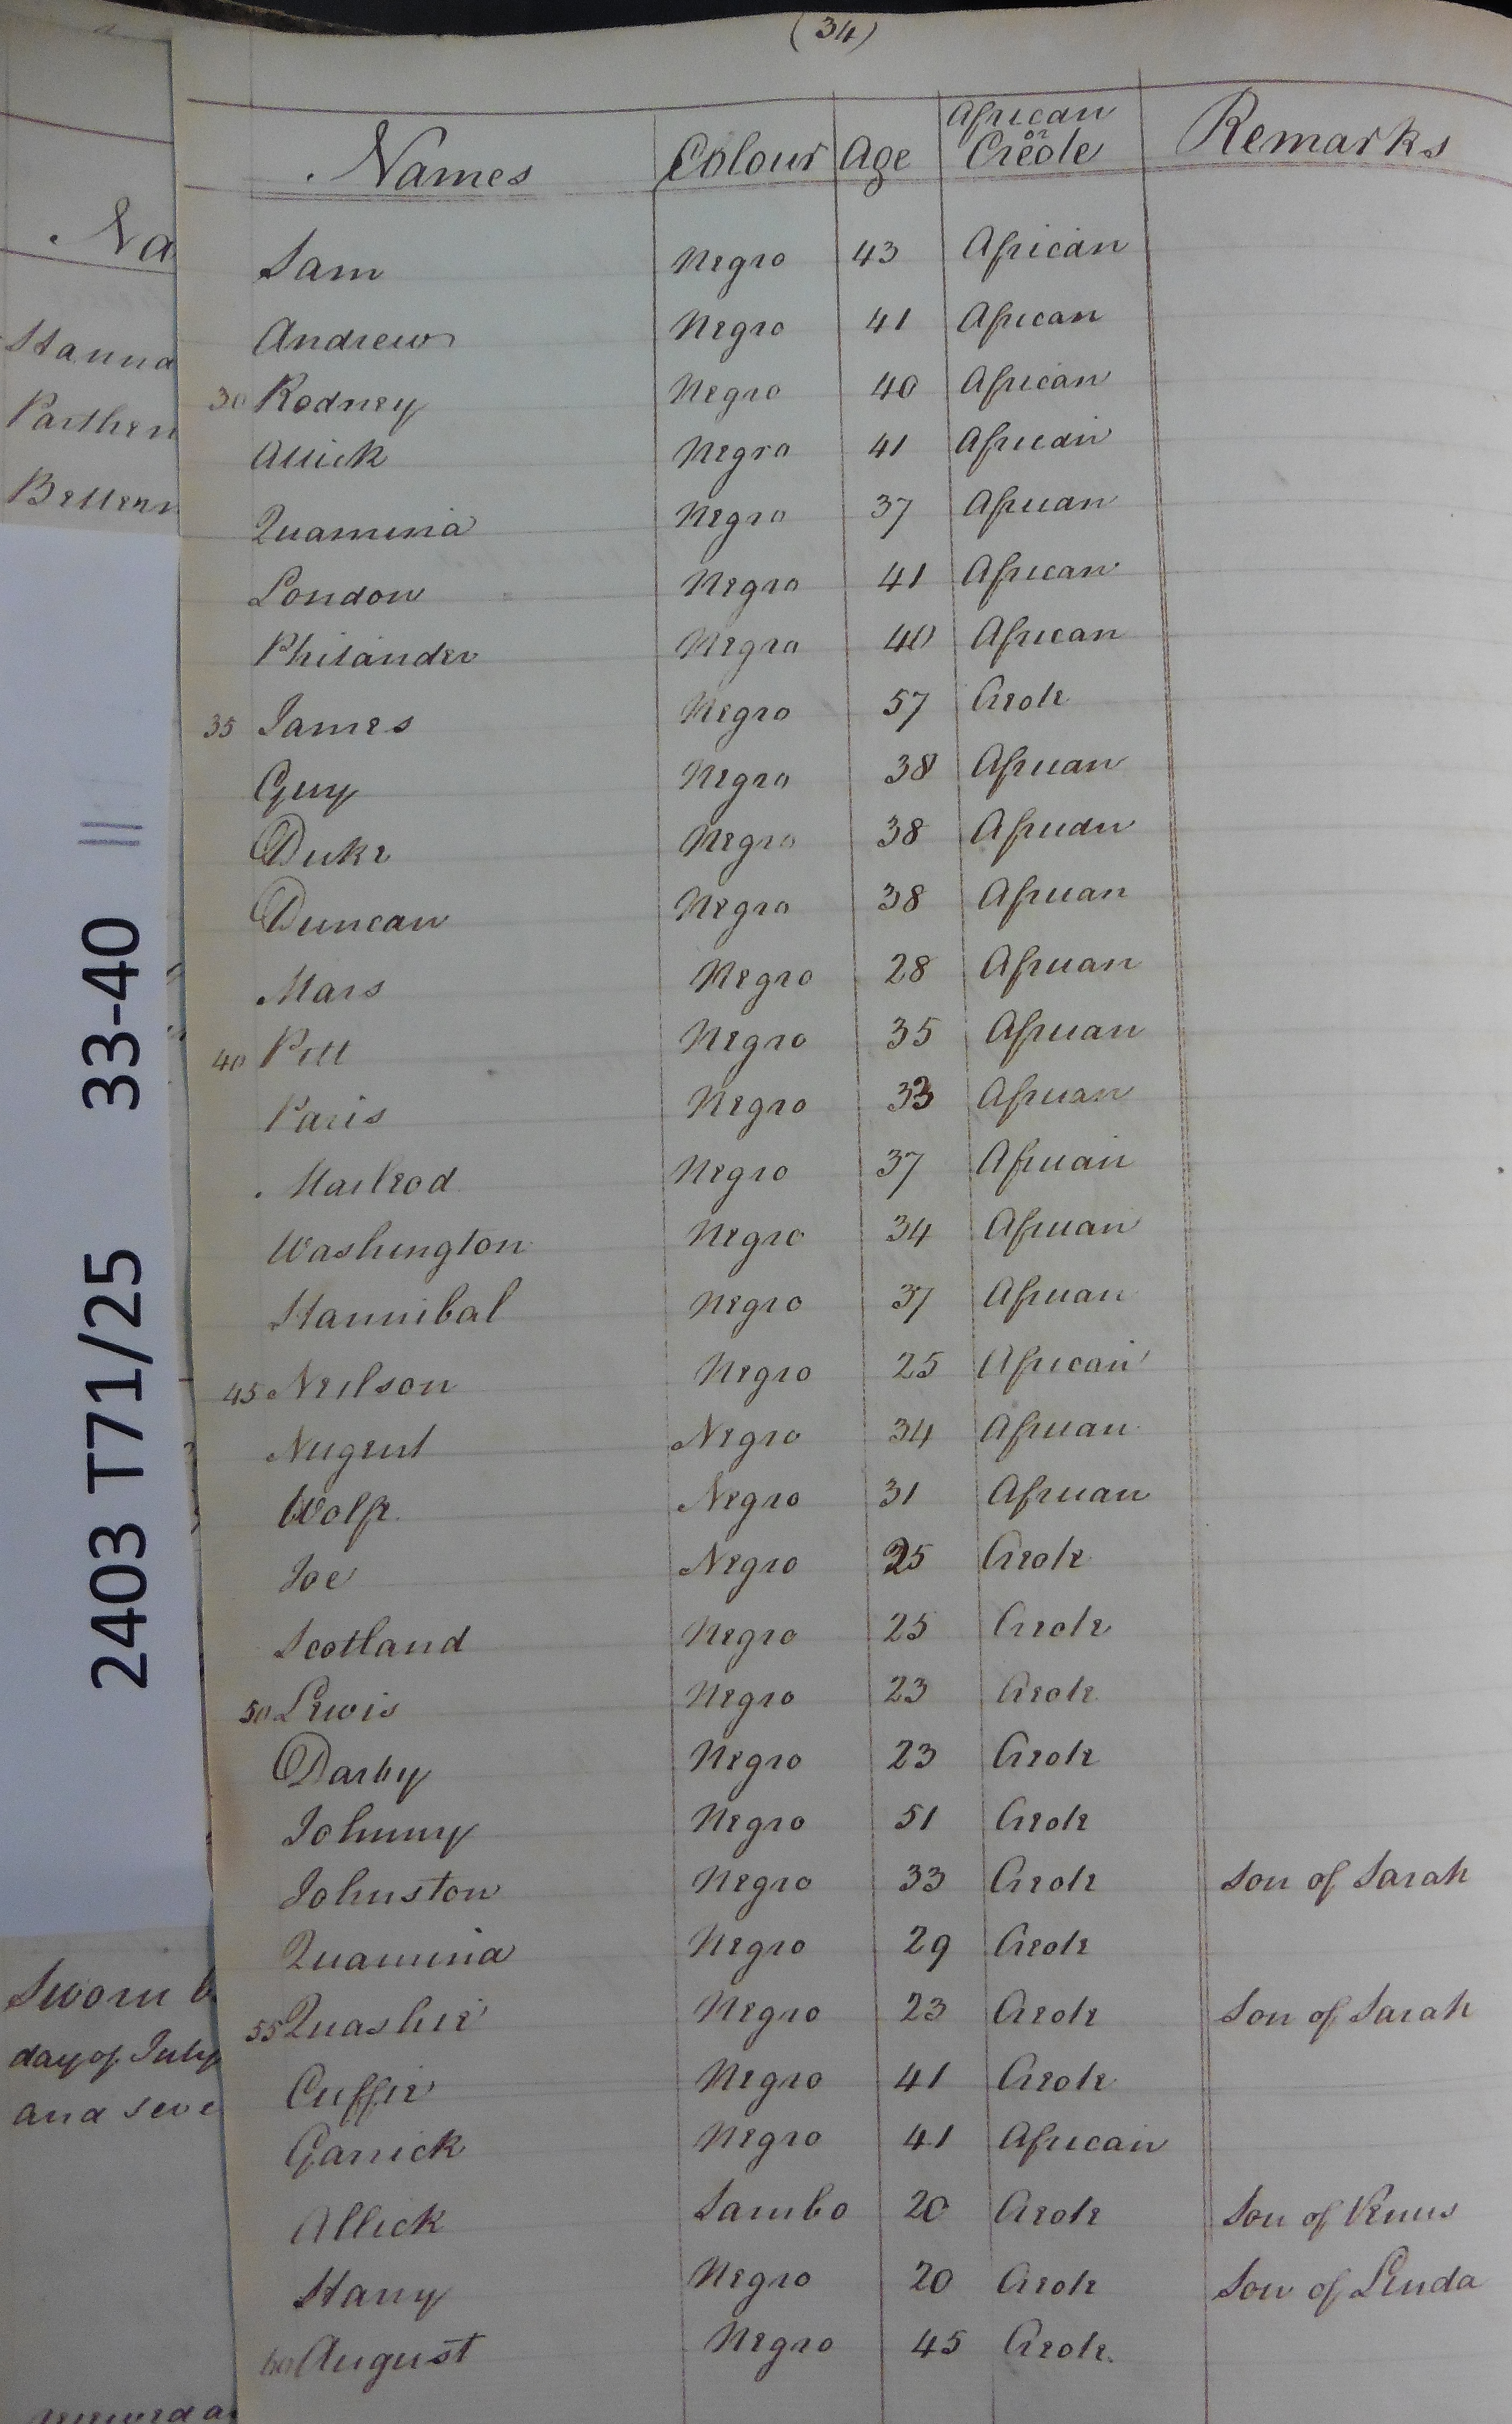 (34)
Names Colour Age African or Creole Remarks
Sam Negro 43 African
Andrew Negro 41 African
30 Rodney Negro 40 African
Allick Negro 41 African
Quamina Negro 37 African
London Negro 41 African
Philander Negro 40 African
35 James Negro 57 Creole
Guy Negro 38 African
Duke Negro 38 African
Duncan Negro 38 African
Mars Negro 28 African
40 Pitt Negro 35 African
Paris Negro 33 African
Macleod Negro 37 African
Washington Negro 34 African
Hannibal Negro 37 African
45 Neilson Negro 25 African
Nugent Negro 34 African
Wolfe Negro 31 African
Joe Negro 25 Creole
Scotland Negro 25 Creole
50 Lewis Negro 23 Creole
Darby Negro 23 Creole
Johnny Negro 51 Creole
Johnston Negro 33 Creole Son of Sarah
Quamina Negro 29 Creole
55 Quashie Negro 23 Creole Son of Sarah
Cuffie Negro 41 Creole
Garrick Negro 41 African
Allick Sambo 20 Creole Son of Venus
Harry Negro 20 Creole Son of Linda
60 August Negro 45 Creole
Na
Hanna
Parthen
2403 T71/25 33-40
Sworn b
day of July
and seve